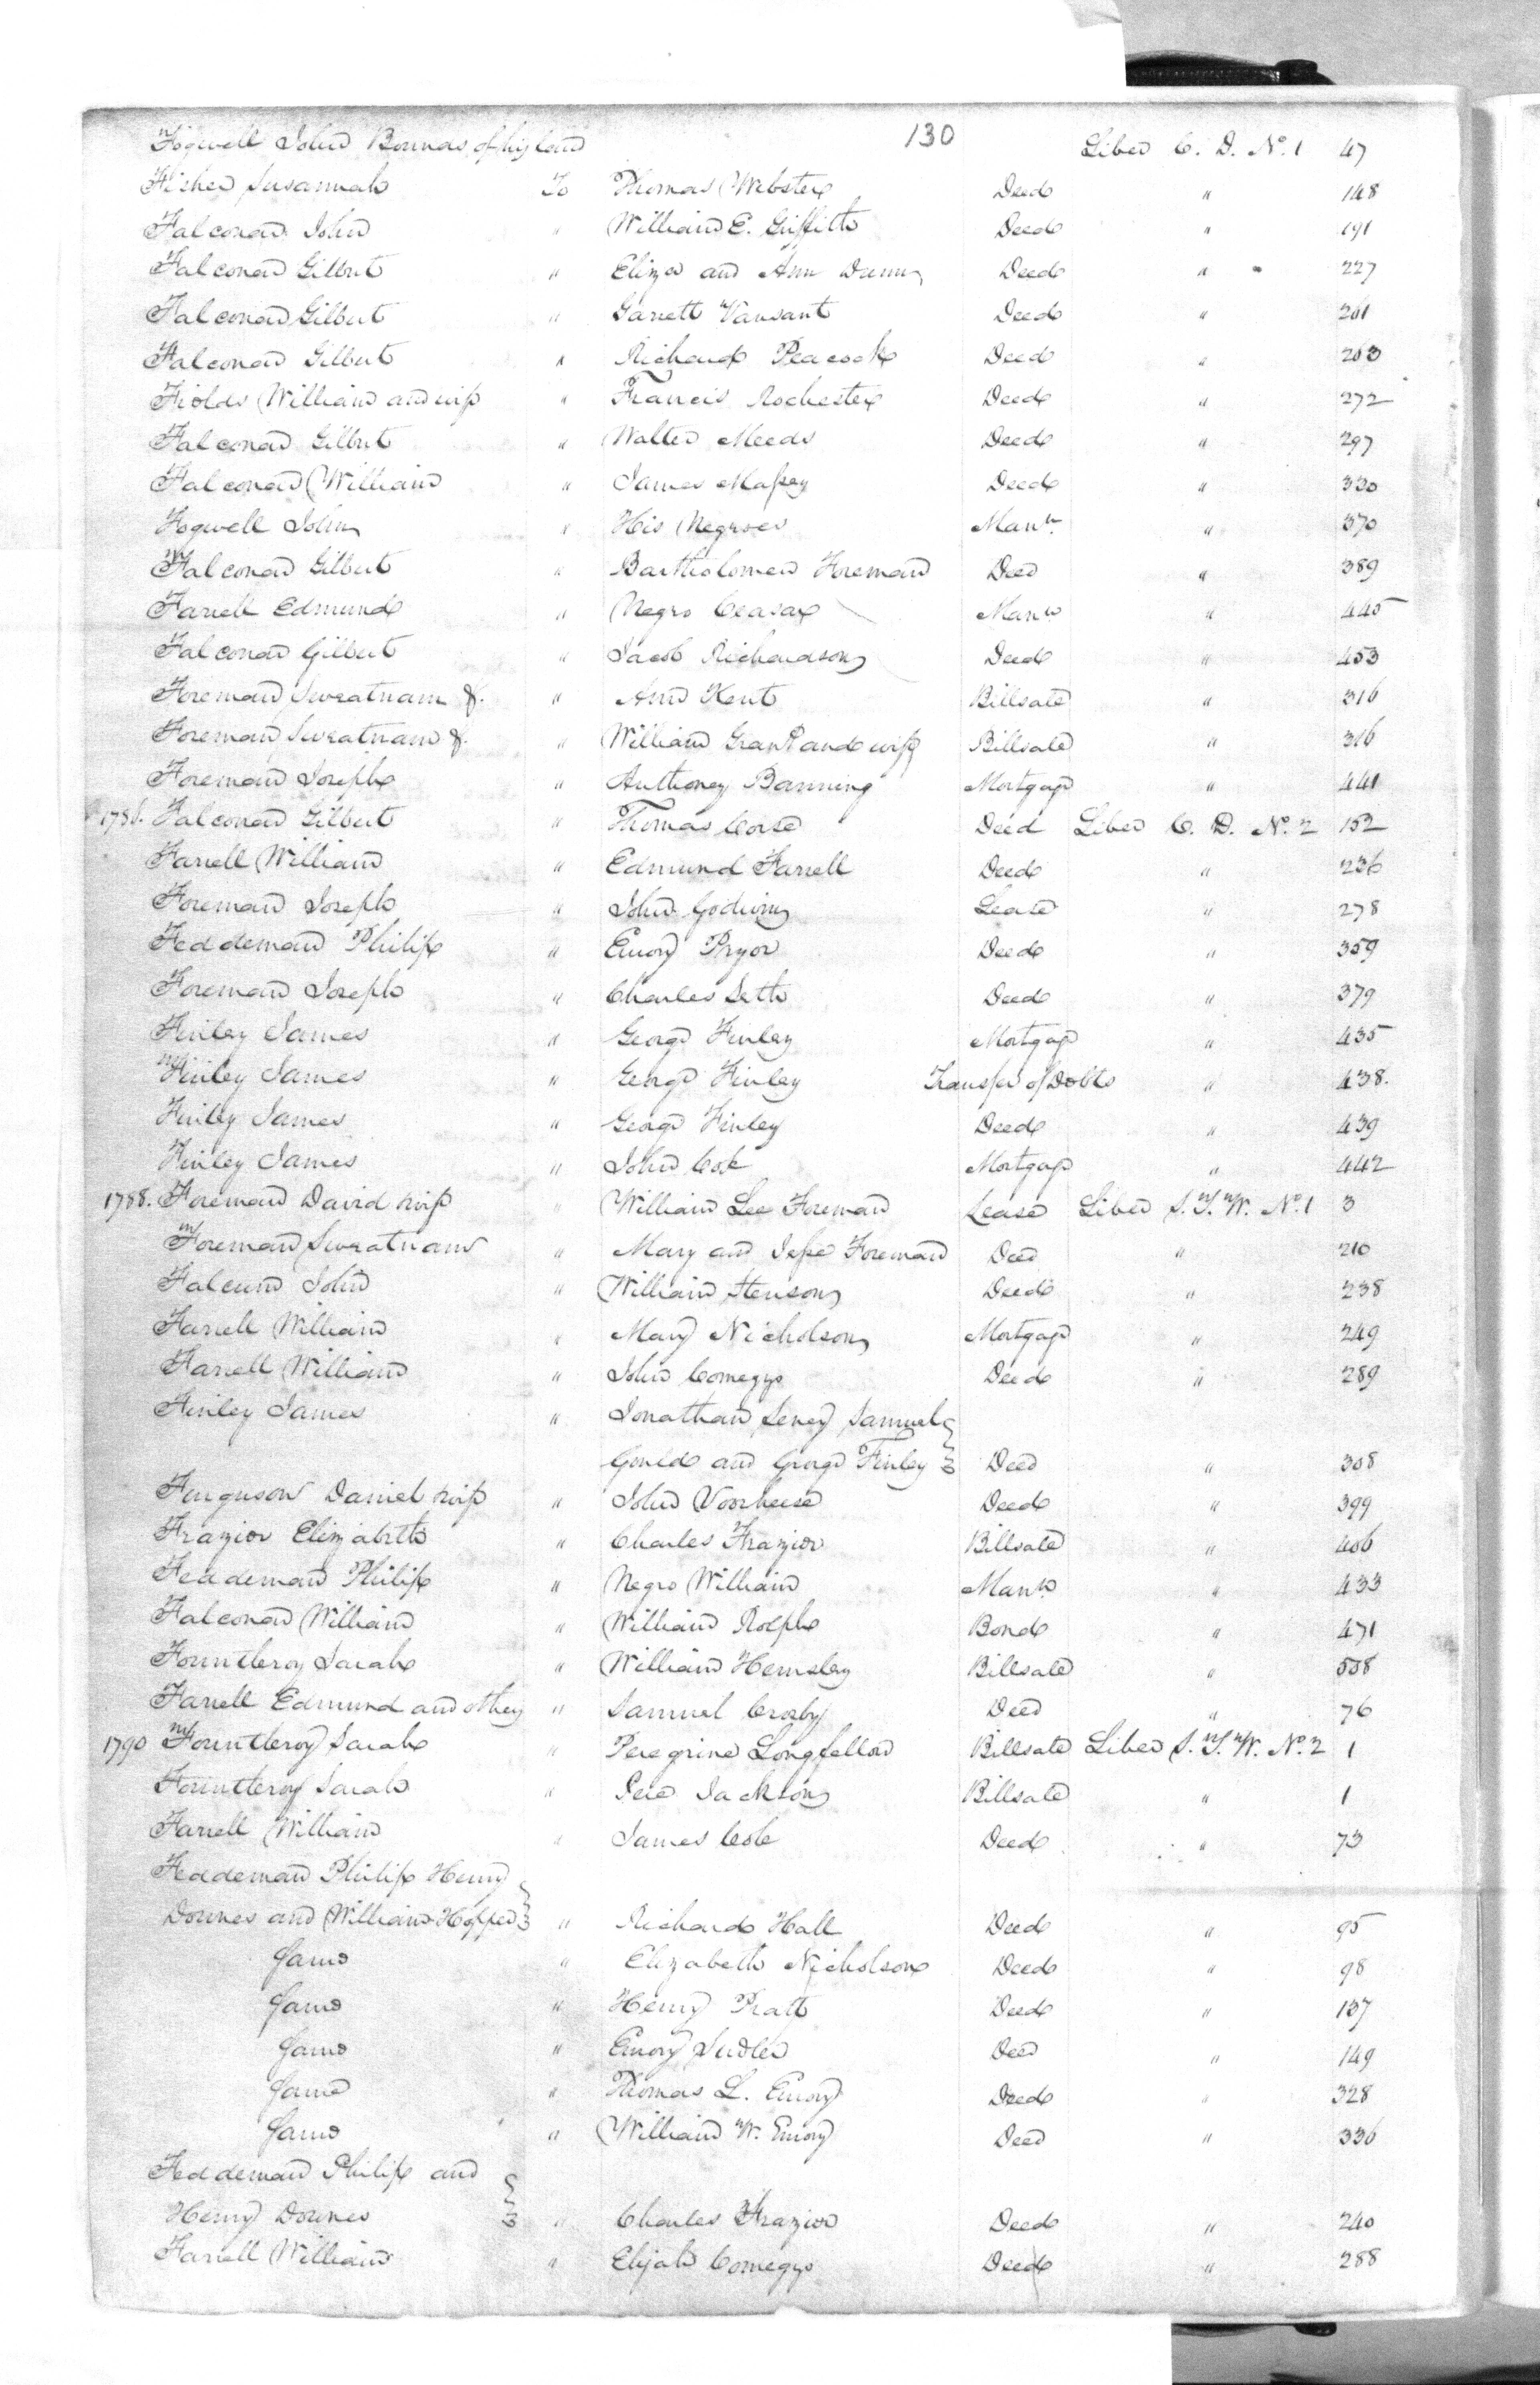 130
Fogwell John Bounds of his land Liber C. D. No. 1 47
Fisher Susannah To Thomas Webster Deed " 148
Falconar John " William E. Griffith Deed " 191
Falconar Gilbert " Eliza and Ann Dunn Deed " 227
Falconar Gilbert " Garrett Vansant Deed " 261
Falconar Gilbert " Richard Peacock Deed " 263
Fields William and wife " Francis Rochester Deed " 272
Falconar Gilbert " Walter Meeds Deed " 297
Falconar William " James Massey Deed " 330
Fogwell John " His Negroes Mann. " 370
Falconar Gilbert " Bartholomew Foreman Deed " 389
Farrell Edmund " Negro Ceasar Mann " 445
Falconar Gilbert " Jacob Richardson Deed " 453
Foreman Sweatnam &. " Ann Kent Billsale " 316
Foreman Sweatnam &. " William Grant and wife Billsale " 316
Foreman Joseph " Anthoney Banning Mortgage " 441
1786. Falconar Gilbert " Thomas Corse Deed Liber C. D. No. 2 152
Farrell William " Edmund Farrell Deed " 236
Foreman Joseph " John Godwin Lease " 278
Feddeman Philip " Emory Pryor Deed " 359
Foreman Joseph " Charles Seth Deed " 379
Finley James " George Finley Mortgage " 435
Finley James " George Finley Transfer of Debts " 438.
Finley James " George Finley Deed " 439
Finley James " John Cole Mortgage " 442
1788. Foreman David & wife " William Lee Foreman Lease Liber S. T. W. No. 1 3
Foreman Sweatnam " Mary and Jesse Foreman Deed " 210
Falcund John " William Stenson Deed " 238
Farrell William " Mary Nicholson Mortgage " 249
Farrell William " John Comegys Deed " 289
Finley James " Jonathan Seney Samuel
Gould and George Finley Deed " 308
Ferguson Daniel & wife " John Voorheese Deed " 399
Frazior Elizabeth " Charles Frazior Billsale " 406
Feddeman Philip " Negro William Mann. " 433
Falconar William " William Rolph Bond " 471
Fountleroy Sarah " William Hemsley Billsale " 508
Farrell Edmund and others " Samuel Crosby Deed " 76
1790 Fountleroy Sarah " Peregrine Longfellow Billsale Liber S. T. W. No. 2 1
Fountleroy Sarah " Pere Jackson Billsale " 1
Farrell William " James Cole Deed " 73
Feddeman Philip Henry
Downes and William Hopper " Richard Hall Deed " 95
Same " Elizabeth Nicholson Deed " 98
Same " Henry Pratt Deed " 137
Same " Emory Sudler Deed " 149
Same " Thomas L. Emory Deed " 328
Same " William W. Emory Deed " 336
Feddeman Philip and
Henry Downes " Charles Frazior Deed " 240
Farrell William " Elijah Comegys Deed " 288